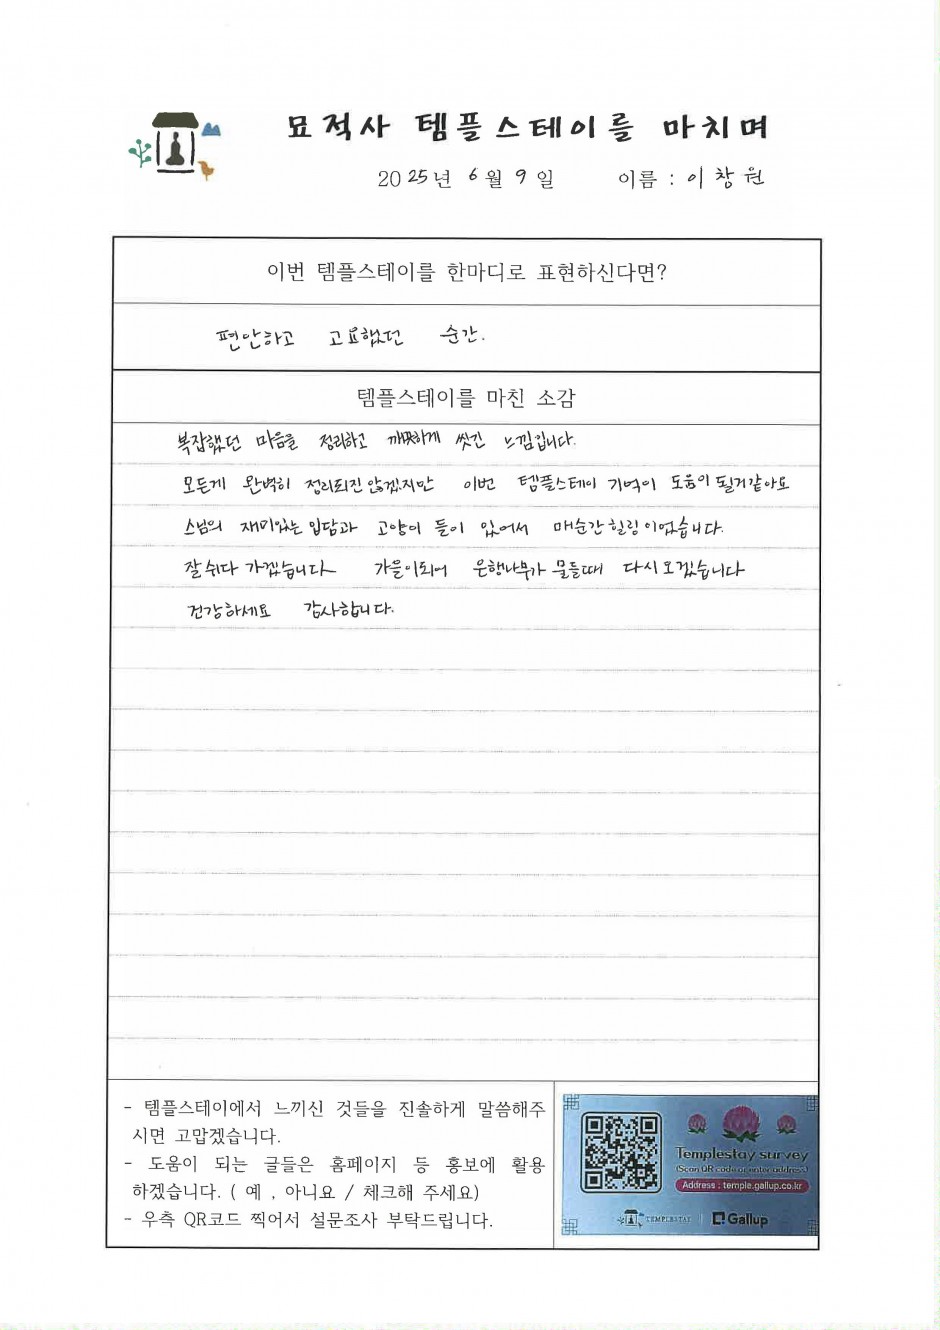 묘적사 템플스테이를 마치며
2025년 6월 9일 이름 : 이창원
이번 템플스테이를 한마디로 표현하신다면?
편안하고 고요했던 순간.
템플스테이를 마친 소감
복잡했던 마음을 정리하고 깨끗하게 씻긴 느낌입니다.
모든게 완벽히 정리되진 않겠지만 이번 템플스테이 기억이 도움이 될거같아요
스님의 재미있는 입담과 고양이 들이 있어서 매순간 힐링이었습니다.
잘 쉬다 가겠습니다 가을이되어 은행나무가 물들때 다시 오겠습니다
건강하세요 감사합니다.
- 템플스테이에서 느끼신 것들을 진솔하게 말씀해주
시면 고맙겠습니다.
- 도움이 되는 글들은 홈페이지 등 홍보에 활용
하겠습니다. ( 예 , 아니요 / 체크해 주세요)
- 우측 QR코드 찍어서 설문조사 부탁드립니다.
Templestay survey
(Scan QR code or enter address)
Address : temple.gallup.co.kr
TEMPLESTAY Gallup